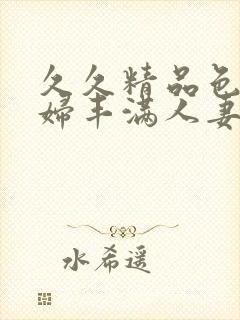 久久精品色
婦丰满人妻
水希遥